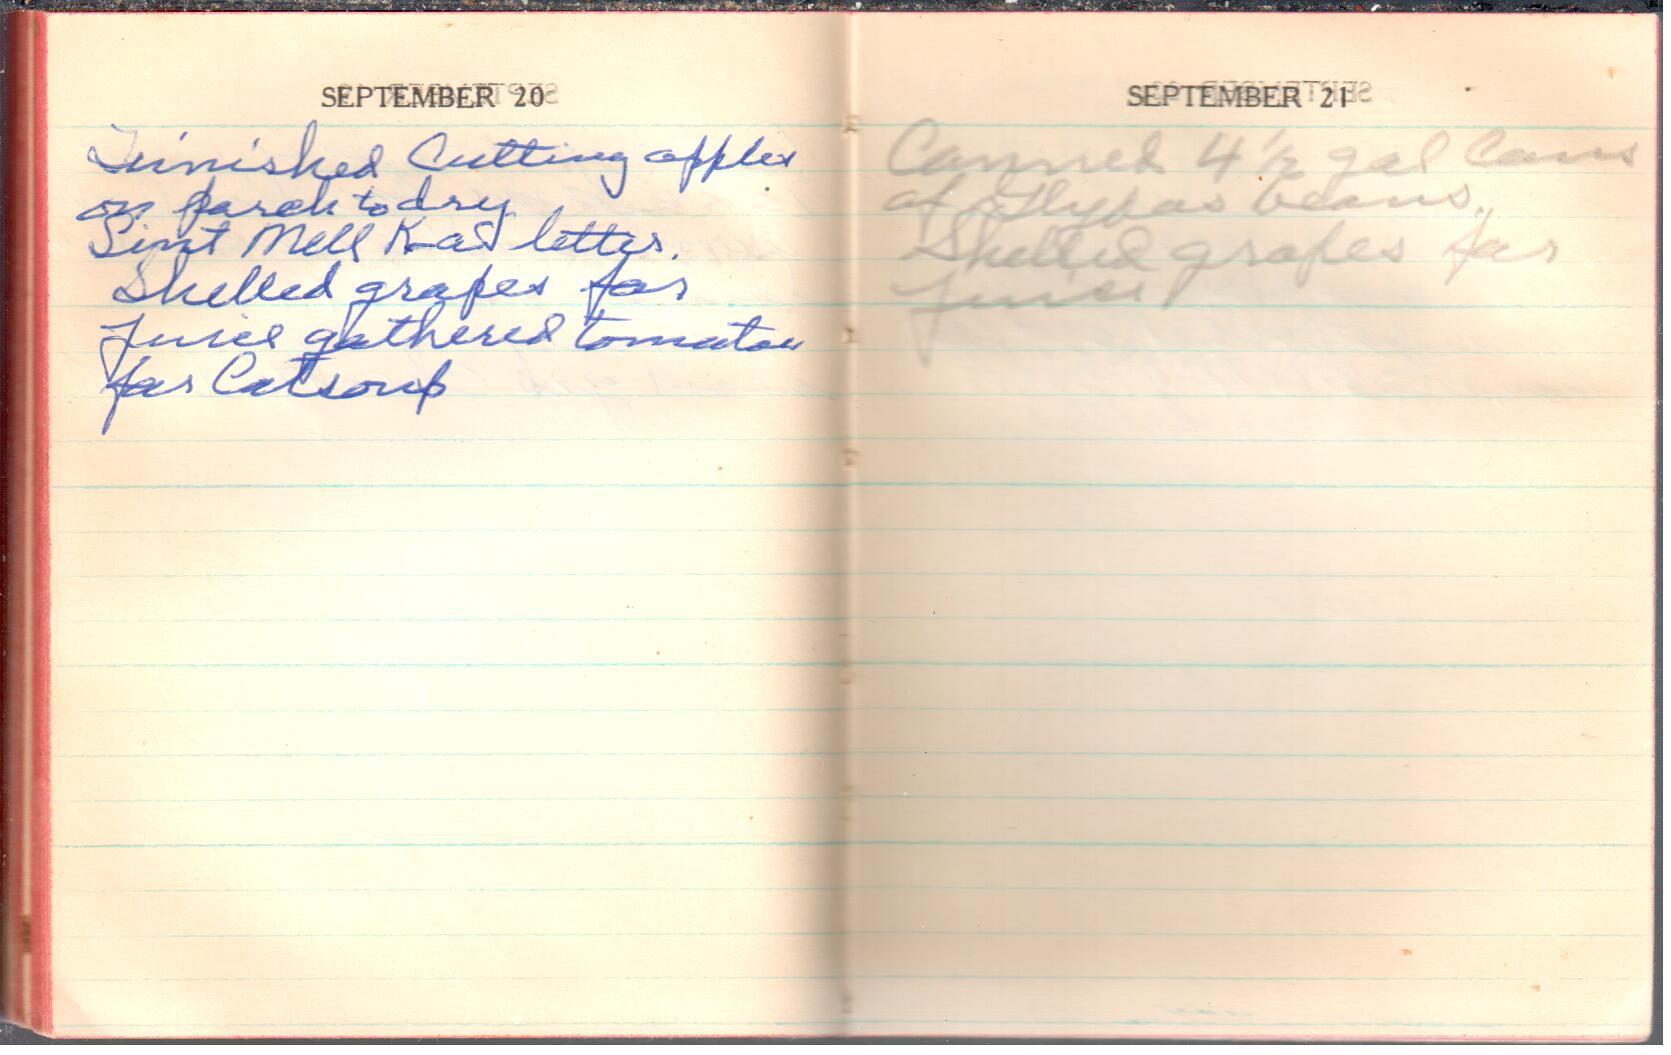 SEPTEMBER 20
Finished Cutting apples
on porch to dry
Sent Mell K a letter.
Shelled grapes for
juice gathered tomatoes
for Catsoup
SEPTEMBER 21
Canned 4 ½ gal Cans
of beans.
Shelled grapes for
juice